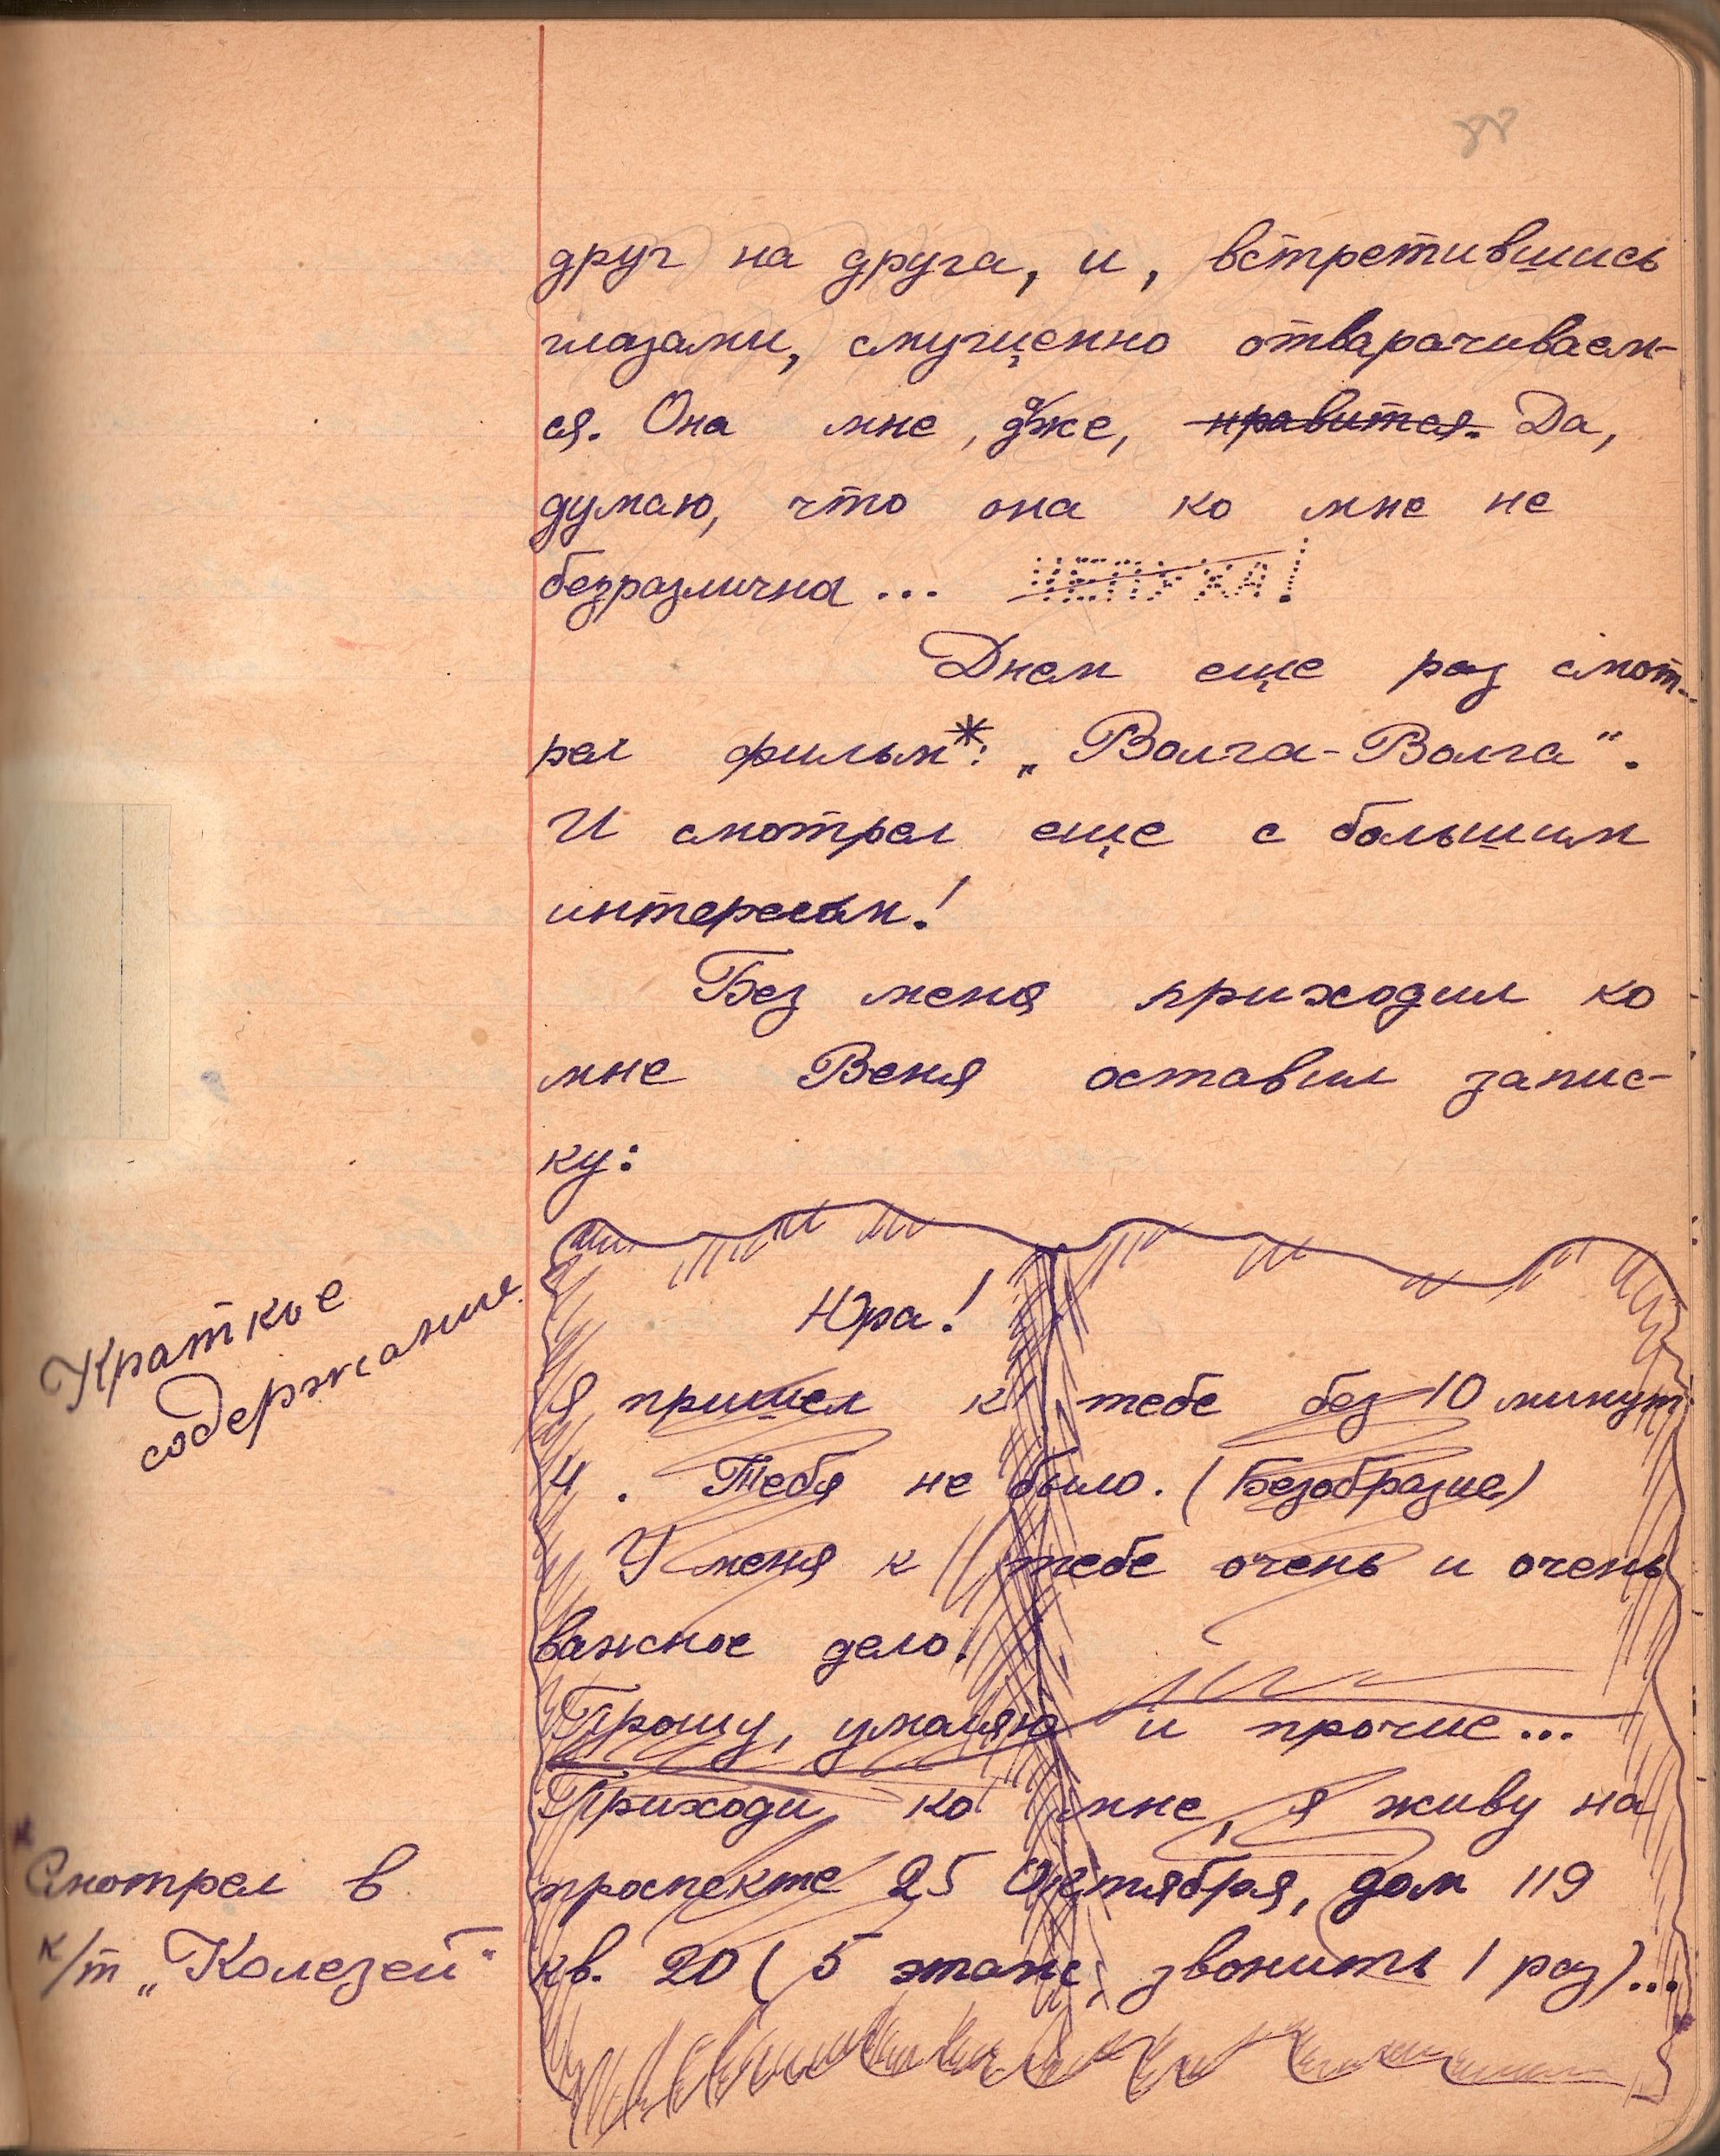 88
друг на друга, и, встретившись
глазами, смущенно отварачиваем-
ся. Она мне, даже, нравится. Да,
думаю, что она ко мне не
безразлична... ЧЕПУХА!
Днем еще раз смот-
рел фильм*: „Волга-Волга“.
И смотрел еще с большим
интересом!
Без меня приходил ко
мне Веня оставил запис-
ку:
Краткое
содержание.
Юра!
Я пришел к тебе без 10 минут
4. Тебя не было. (Безобразие)
У меня к тебе очень и очень
важное дело!
Прошу, умоляю и прочие...
Приходи ко мне, я живу на
проспекте 25 Октября, дом 119
кв. 20 (5 этаж; звонить 1 раз)...
* Смотрел в
к/т „Колезей“